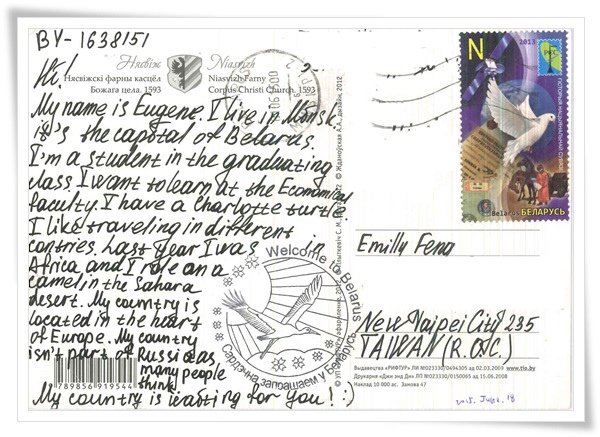 BY-1638151
Hi!
Нясвіж
Niasvizh
Нясвіжскі фарны касцёл
Божага цела. 1593
Niasvizh Farny
Corpus Christi Church. 1593
My name is Eugene. I live in Minsk.
it's the capital of Belarus.
I'm a student in the graduating
class. I want to learn at the Economical
faculty. I have a Charlotte turtle
I like traveling in different
contries. Last Year I was in
Africa and I ride on a
camel in the Sahara
desert. My country is
located in the heart
of Europe. My country
isn't part of Russia as
many people
think.
My country is waiting for you! :)
789856 919544
Welcome to Belarus
Сардэчна запрашаем у Беларусь
N
2013
РСС
Belarus БЕЛАРУСЬ
Emilly Feng
New Taipei City 235
TAIWAN (R.O.C.)
Выдавецтва «РИФТУР» ЛИ №02330/0494305 ад 02.03.2009 www.tio.by
Друкарня «Джи энд Ди» ЛП №02330/0150065 ад 15.06.2008
Наклад 10 000 ас. Замова 47
2015. June. 18